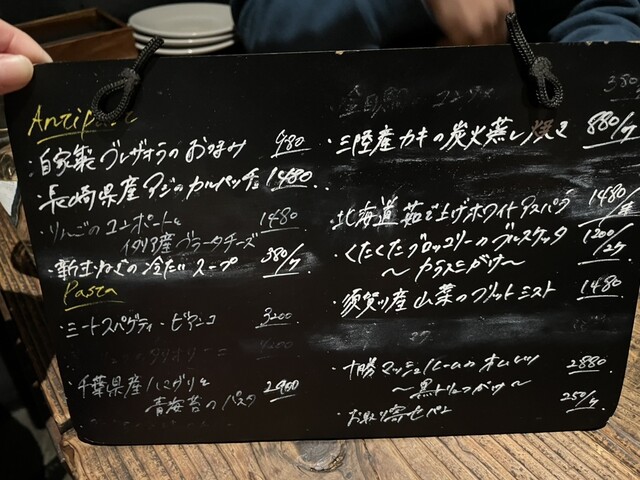 Antipasto
・自家製ブレザオラのおつまみ 980
・長崎県産アジのカルパッチョ 1480
・りんごのコンポートと 1480
イタリア産ブラータチーズ
・新玉ねぎの冷たいスープ 380/ケ
Pasta
・ミートスパゲティ・ビアンコ 3200
4200
・千葉県産ハマグリと 2900
青海苔のパスタ
380
・三陸産カキの炭火蒸し焼き 880/ケ
・北海道茹で上げホワイトアスパラ 1480/本
・くたくたブロッコリーのブルスケッタ 1200/2ケ
〜カラスミがけ〜
・須賀川産山菜のフリットミスト 1480
・十勝マッシュルームのオムレツ 2880
〜黒トリュフがけ〜
・お取り寄せパン 250/ケ